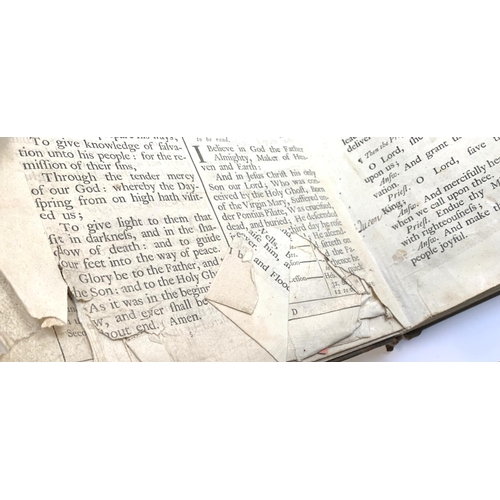 To give knowledge of salva-
tion unto his people: for the re-
mission of their sins,
Through the tender mercy
of our God: whereby the Day-
spring from on high hath visit-
ed us;
To give light to them that
sit in darkness, and in the sha-
dow of death: and to guide
our feet into the way of peace.
Glory be to the Father, and
the Son: and to the Holy Ghost
As it was in the beginn
w, and ever shall be
out end. Amen.
to be read.
I Believe in God the Father
Almighty, Maker of Hea-
ven and Earth:
And in Jesus Christ his only
Son our Lord, Who was con-
ceived by the Holy Ghost, Born
of the Virgin Mary, Suffered un-
der Pontius Pilate, Was crucified,
dead, and buried; He descended
Third day he rose
and Flood
D
O Lord,
upon us;
Answ. And grant
Priest. O Lord, save
King;
Answ. And mercifully hear
when we call upon thee.
Priest. Endue thy
with righteousness;
Answ. And make
people joyful.